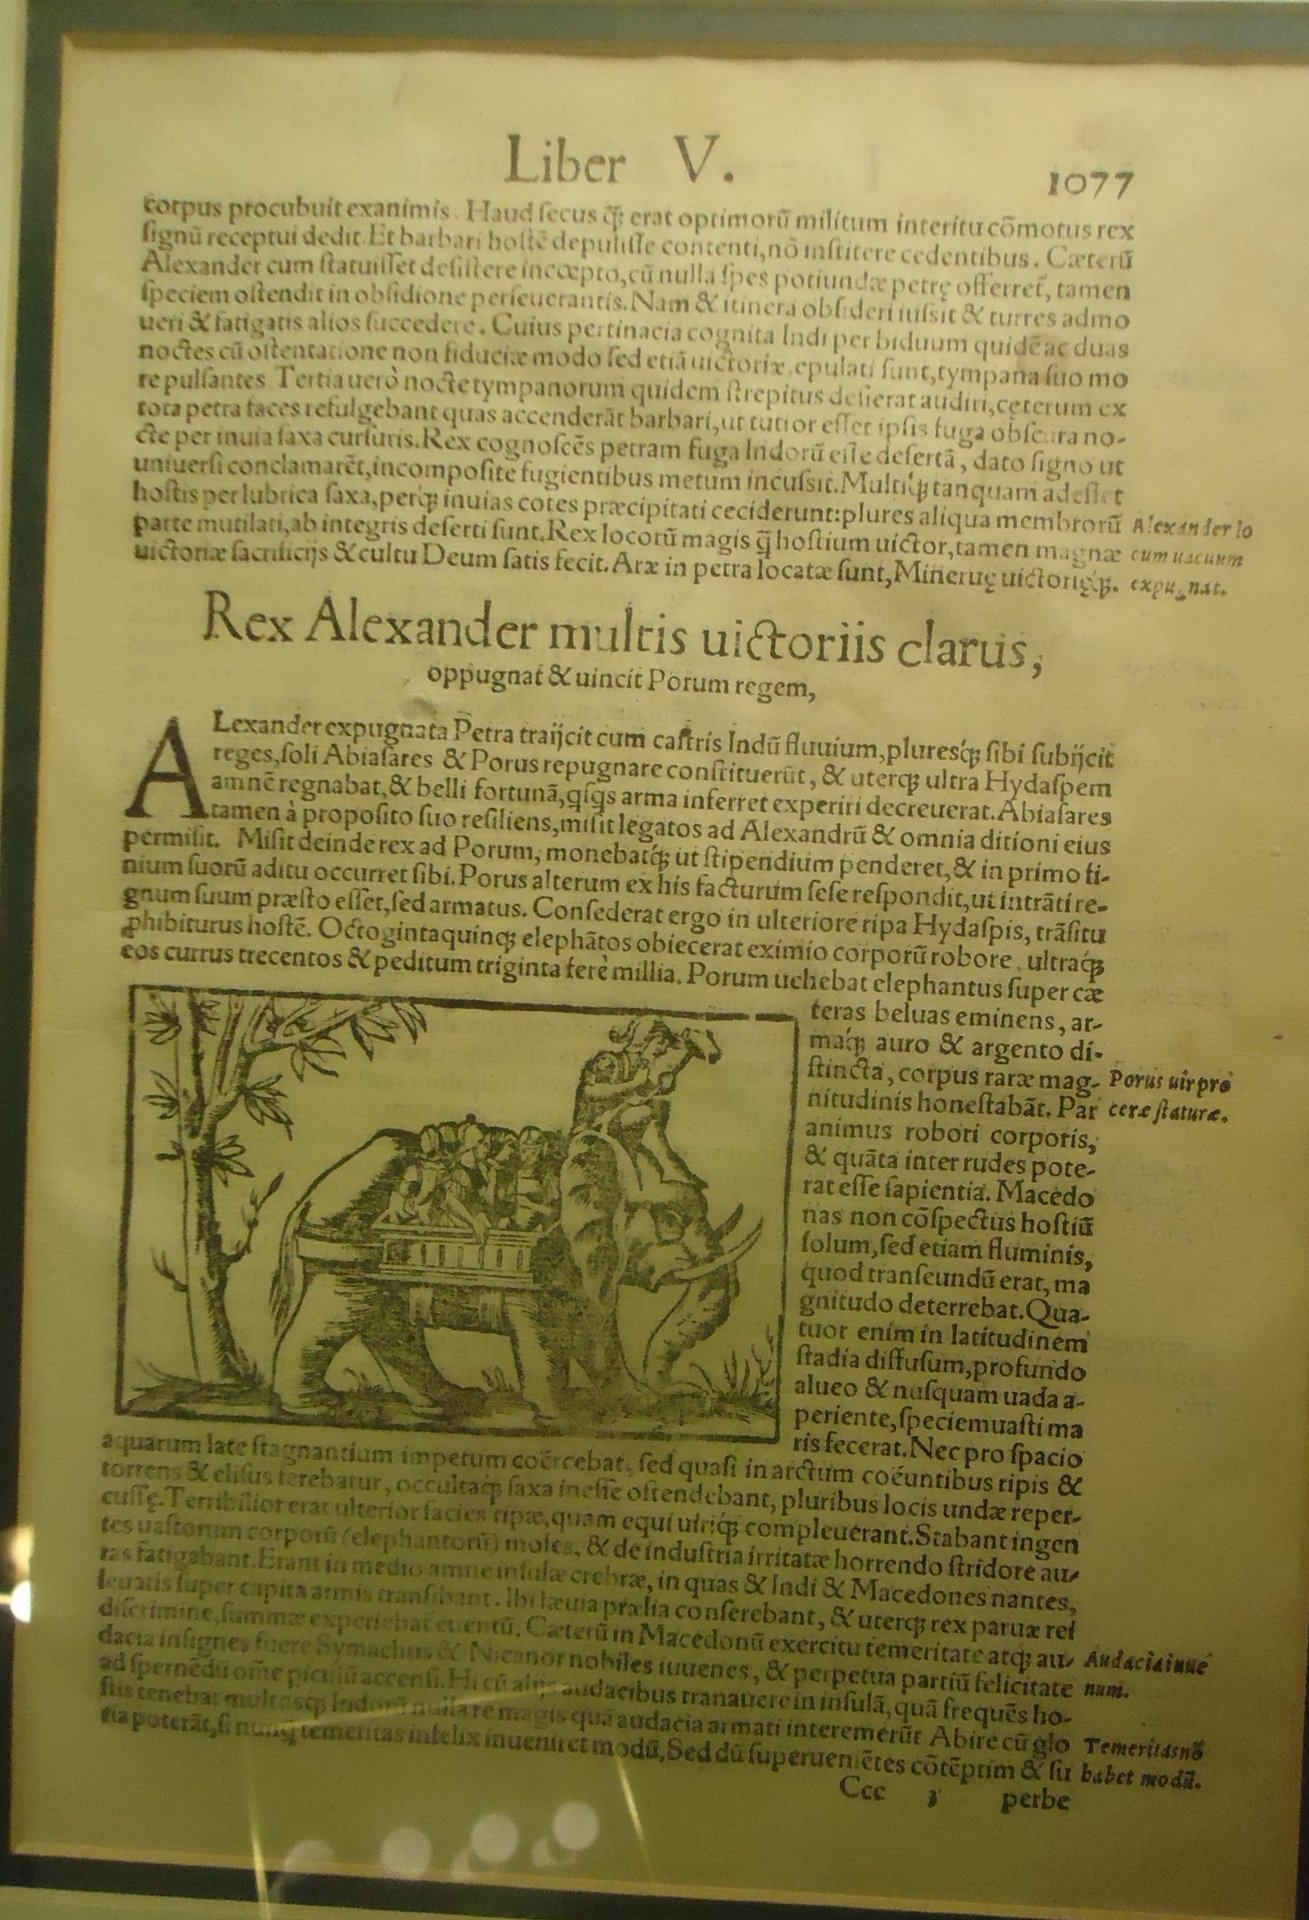 Liber V.
1077
corpus procubuit exanimis. Haud ſecus q̃; erat optimorũ militum interitu cõmotus rex
ſignũ receptui dedit. Et barbari hoſtẽ depuliſſe contenti, nõ inſtitere cedentibus. Cæterũ
Alexander cum ſtatuiſſet deſiſtere incœpto, cũ nulla ſpes potiundæ petrę offerret̃, tamen
ſpeciem oſtendit in obſidione perſeuerantis. Nam & itinera obſideri iuſsit & turres admo
ueri & fatigatis alios ſuccedere. Cuius pertinacia cognita Indi per biduum quidẽ ac duas
noctes cũ oſtentatione non fiduciæ modo ſed etiã uictoriæ, epulati ſunt, tympana ſuo mo
re pulſantes Tertia uerò nocte tympanorum quidem ſtrepitus deſierat audiri, cęterum ex
tota petra faces refulgebant quas accenderãt barbari, ut tutior eſſet ipſis fuga obſcura no-
cte per inuia ſaxa curſuris. Rex cognoſcẽs petram fuga Indorũ eſſe deſertã, dato ſigno ut
uniuerſi conclamarẽt, incompoſite fugientibus metum incuſsit. Multiq́; tanquam adeſſet
hoſtis per lubrica ſaxa, perq́; inuias cotes præcipitati ceciderunt: plures aliqua membrorũ
parte mutilati, ab integris deſerti ſunt. Rex locorũ magis q̃ hoſtium uictor, tamen magnæ
uictoriæ ſacrificijs & cultu Deum ſatis fecit. Aræ in petra locatæ ſunt, Mineruę uictorięq́;.
Alexander lo
cum uacuum
expugnat.
Rex Alexander multis uictoriis clarus,
oppugnat & uincit Porum regem,
ALexander expugnata Petra traijcit cum caſtris Indũ fluuium, pluresq́; ſibi ſubijcit
reges, ſoli Abiaſares & Porus repugnare conſtituerũt, & uterq; ultra Hydaſpem
amnẽ regnabat, & belli fortunã, qſqs arma inferret experiri decreuerat. Abiaſares
tamen à propoſito ſuo reſiliens, miſit legatos ad Alexandrũ & omnia ditioni eius
permiſit. Miſit deinde rex ad Porum, monebatq́; ut ſtipendium penderet, & in primo fi-
nium ſuorũ aditu occurret ſibi. Porus alterum ex his facturum ſeſe reſpondit, ut intrãti re-
gnum ſuum præſto eſſet, ſed armatus. Conſederat ergo in ulteriore ripa Hydaſpis, trãſitu
ꝓhibiturus hoſtẽ. Octogintaquinq; elephãtos obiecerat eximio corporũ robore, ultraq́;
eos currus trecentos & peditum triginta ferè millia. Porum uehebat elephantus ſuper cæ
teras beluas eminens, ar-
maq́; auro & argento di-
ſtincta, corpus raræ mag-
nitudinis honeſtabãt. Par
animus robori corporis,
& quãta inter rudes pote-
rat eſſe ſapientia. Macedo
nas non cõſpectus hoſtiũ
ſolum, ſed etiam fluminis,
quod tranſeundũ erat, ma
gnitudo deterrebat. Qua-
tuor enim in latitudinem
ſtadia diffuſum, profundo
alueo & nuſquam uada a-
periente, ſpeciem uaſti ma
ris fecerat. Nec pro ſpacio
Porus uir pro
ceræ ſtaturæ.
aquarum late ſtagnantium impetum coërcebat, ſed quaſi in arctum coëuntibus ripis &
torrens & eliſus ferebatur, occultaq́; ſaxa ineſſe oſtendebant, pluribus locis undæ reper-
cuſſę. Terribilior erat ulterior facies ripæ, quam equi uiriq́; compleuerant. Stabant ingen
tes uaſtorum corporũ (elephantorũ) moles, & de induſtria irritatæ horrendo ſtridore au-
ras fatigabant. Erant in medio amne inſulæ crebræ, in quas & Indi & Macedones nantes,
leuatis ſuper capita armis tranſibant. Ibi læuia prælia conſerebant, & uterq; rex paruæ rei
diſcrimine, ſummæ experiebat̃ euentũ. Cæterũ in Macedonũ exercitu temeritate atq; au-
dacia inſignes fuere Symachus & Nicanor nobiles iuuenes, & perpetua partiũ felicitate
ad ſpernẽdũ om̃e piculũ accenſi. Hi cũ alijs audacibus tranauere in inſulã, quã frequẽs ho-
ſtis tenebat multosq; Indorũ nulla re magis quã audacia armati interemerũt Abire cũ glo
ria poterãt, ſi nunq̃ temeritas infelix inueniret modũ, Sed dũ ſuperueniẽtes cõtẽptim & ſu
Audacia iuuẽ
num.
Temeritas nõ
habet modũ.
Ccc 3 perbe